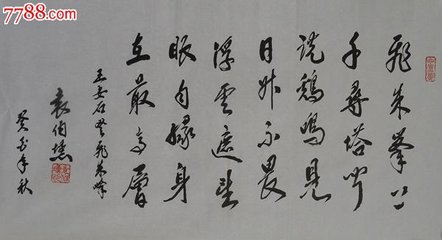 7788.com
飛来峯上
千尋塔聞
説鷄鳴見
日升不畏
浮雲遮望
眼自緣身
在最高層
王安石登飛来峰
袁伯
癸年秋